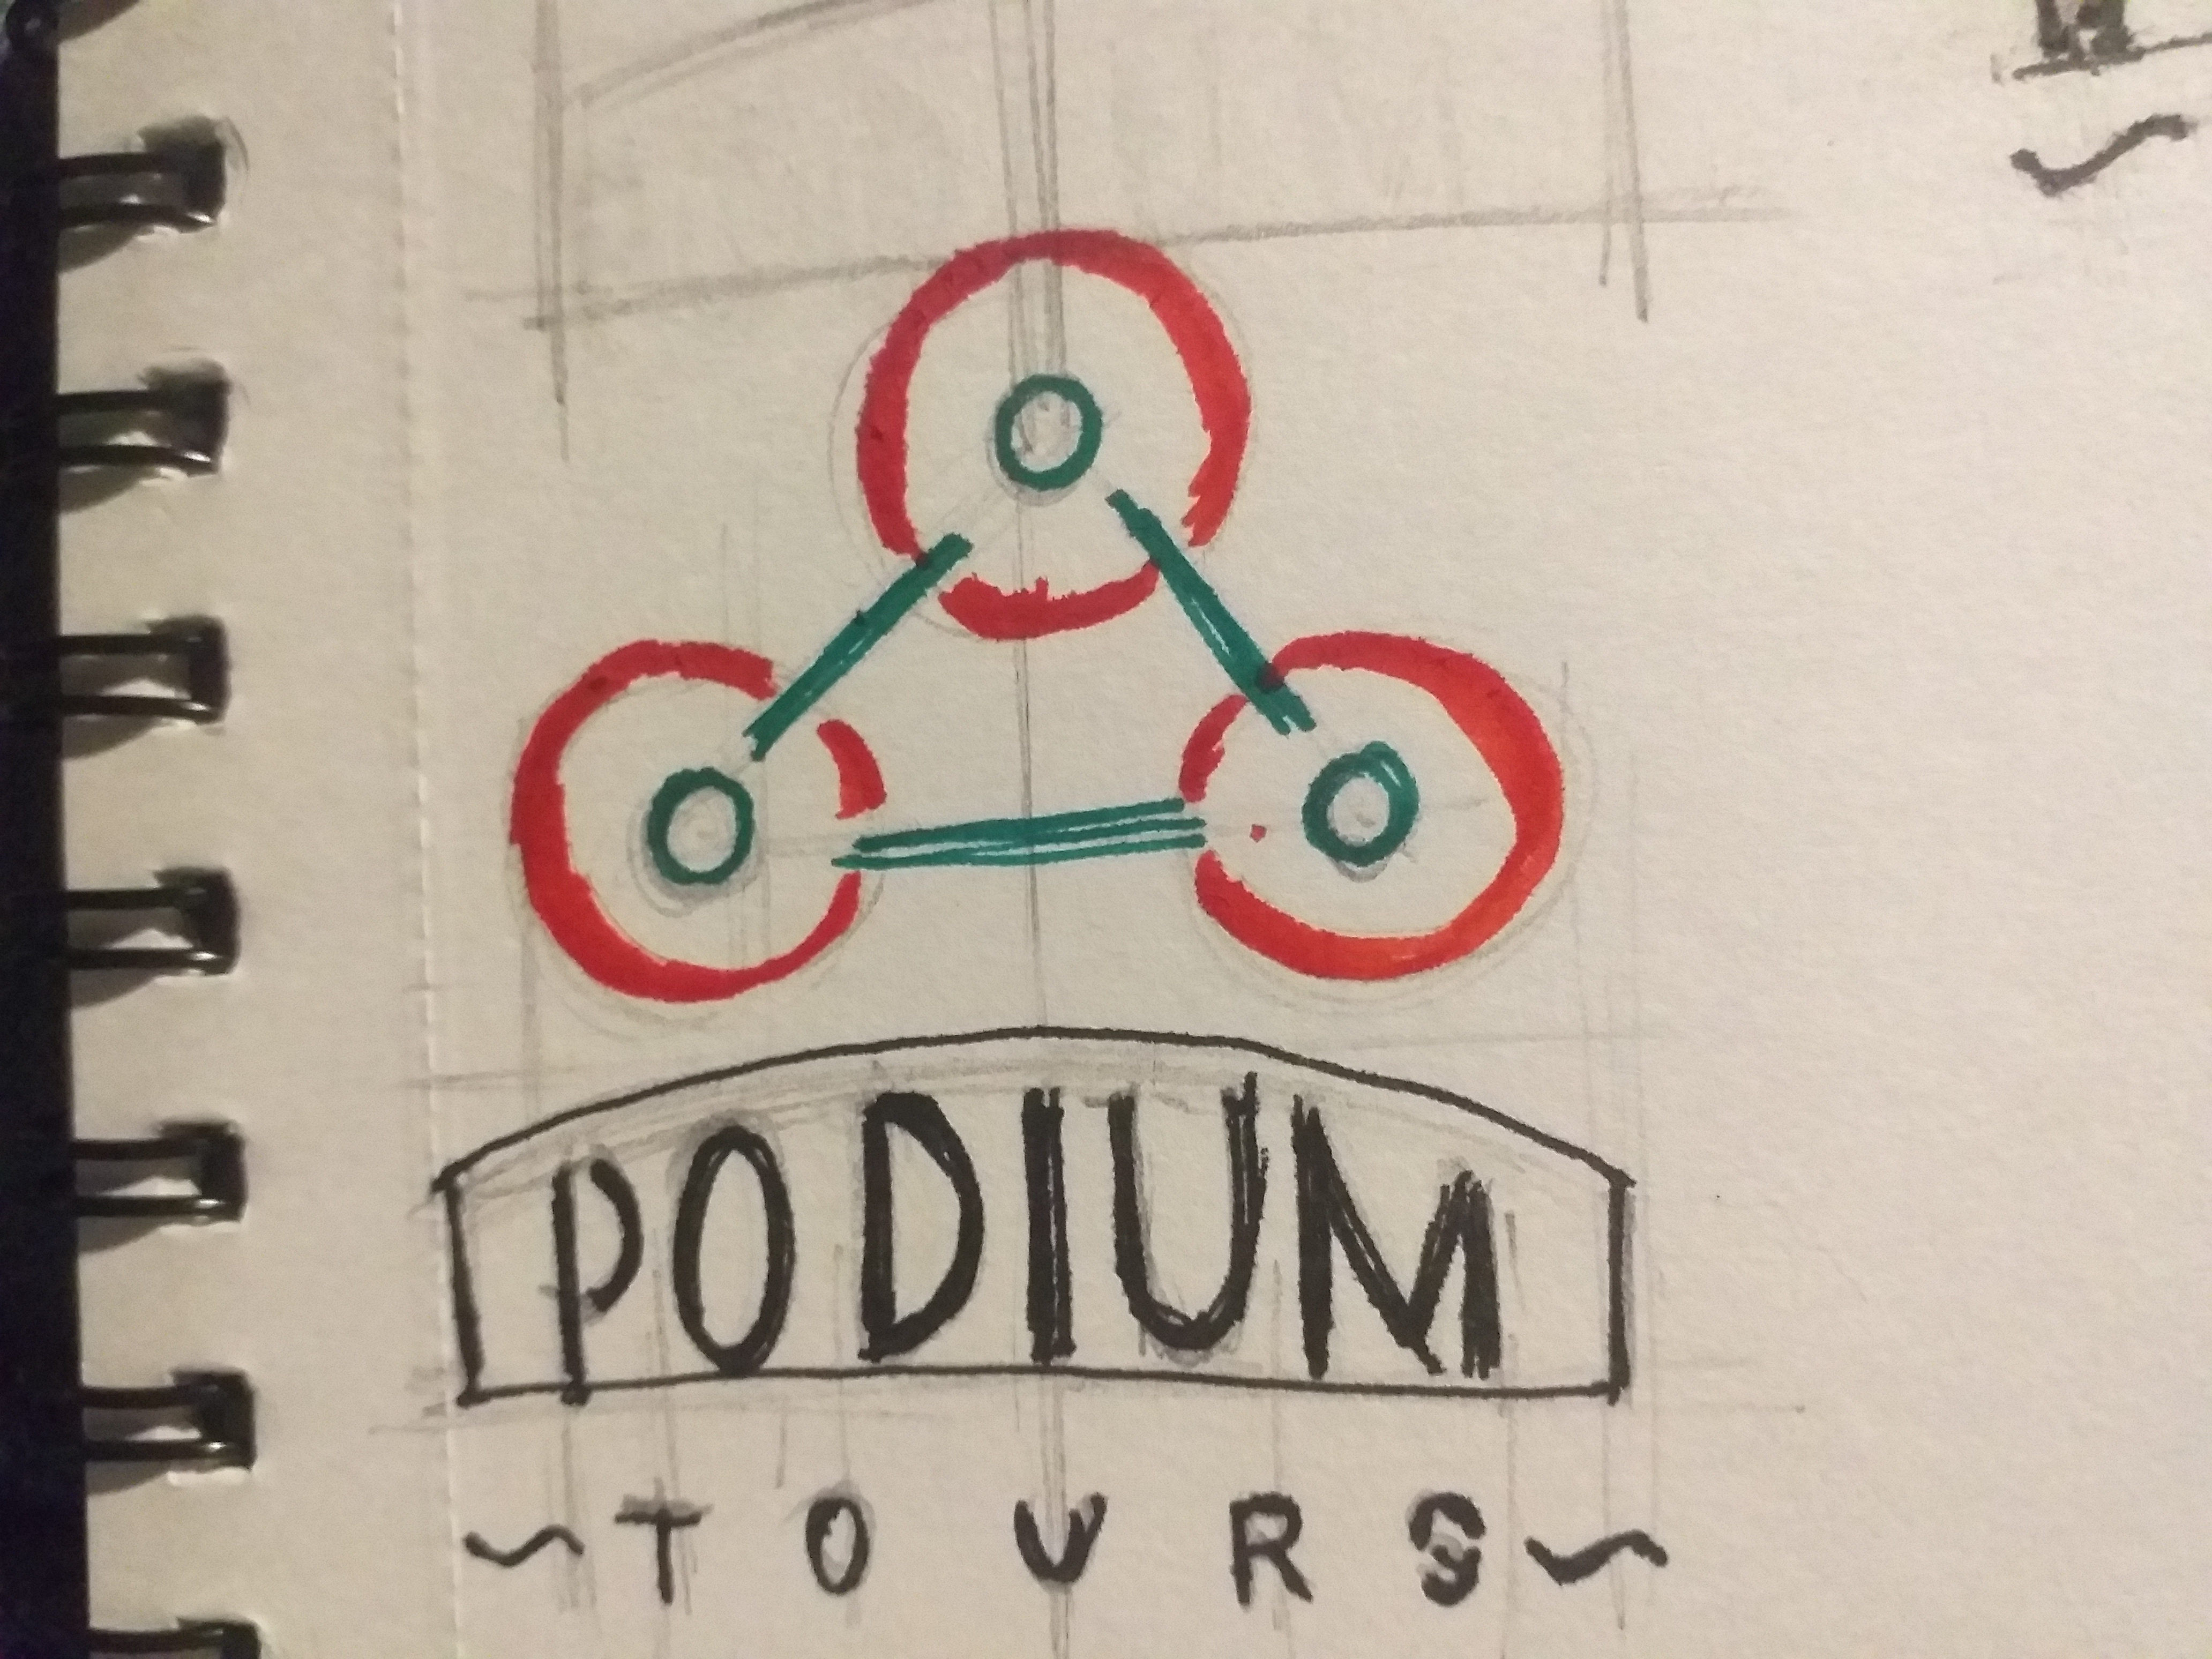 PODIUM
~ TOURS ~